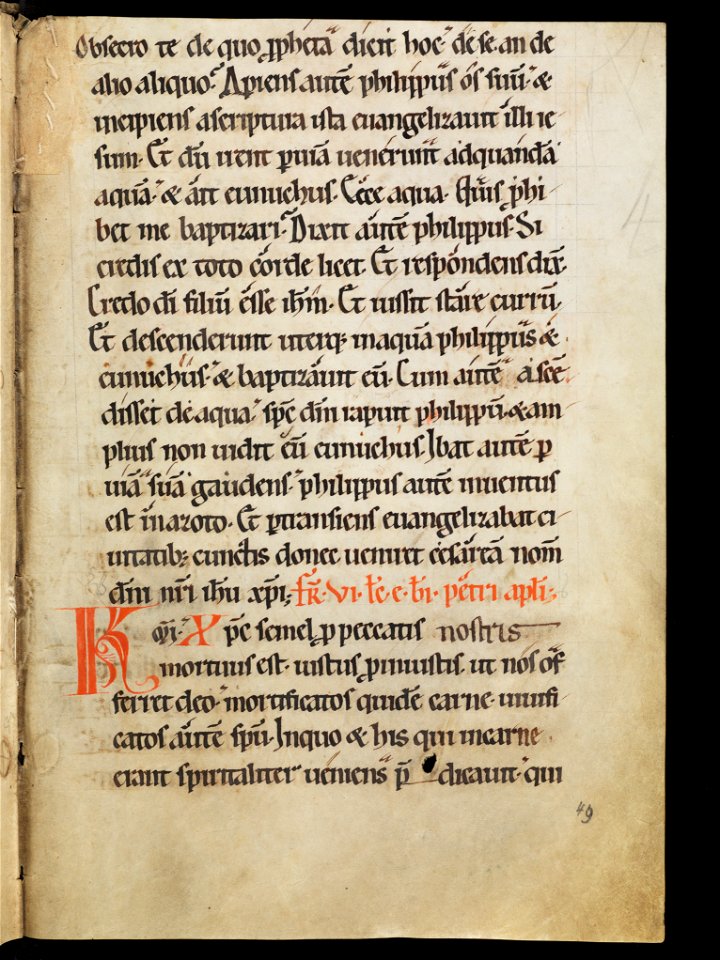 Obsecro te de quo ꝓph̅eta dicit hoc· de se· an de
alio aliquo· Apiens aute̅ philippus os suu̅· &
incipiens a scriptura ista euangelizauit illi ie
sum· Et du̅ irent ꝑ uia̅ uenerunt ad quanda̅
aqua̅· & ait eunuchus· Ecce aqua· Quis ꝓhi
bet me baptizari· Dixit aute̅ philippus· Si
credis ex toto corde licet· Et respondens dix̅·
Credo di̅ filiu̅ esse ih̅m· Et iussit stare curru̅·
Et descenderunt uterq; in aqua̅ philippus &
eunuchus· & baptizauit eu̅· Cum aute̅ asce̅
disset de aqua· sp̅c dn̅i rapuit philippu̅· & am
plius non uidit eu̅ eunuchus· Ibat aute̅ ꝑ
uia̅ sua̅ gaudens· philippus aute̅ inuentus
est in azoto· Et ꝑtransiens euangelizabat ci
uitatib; cunctis donec ueniret cesarea̅ nom̅
dn̅i nr̅i ih̅u xp̅i; fr̅· vi· le̅c· e· bi̅· petri apl̅i;
K mi̅· X p̅c semel ꝓ peccatis nostris
mortuus est· iustus ꝓ iniustis· ut nos off
ferret deo· mortificatos quide̅ carne· uiuifi
catos aute̅ sp̅u· In quo & his qui in carne
erant spiritaliter ueniens p̅ dicauit· qui
49